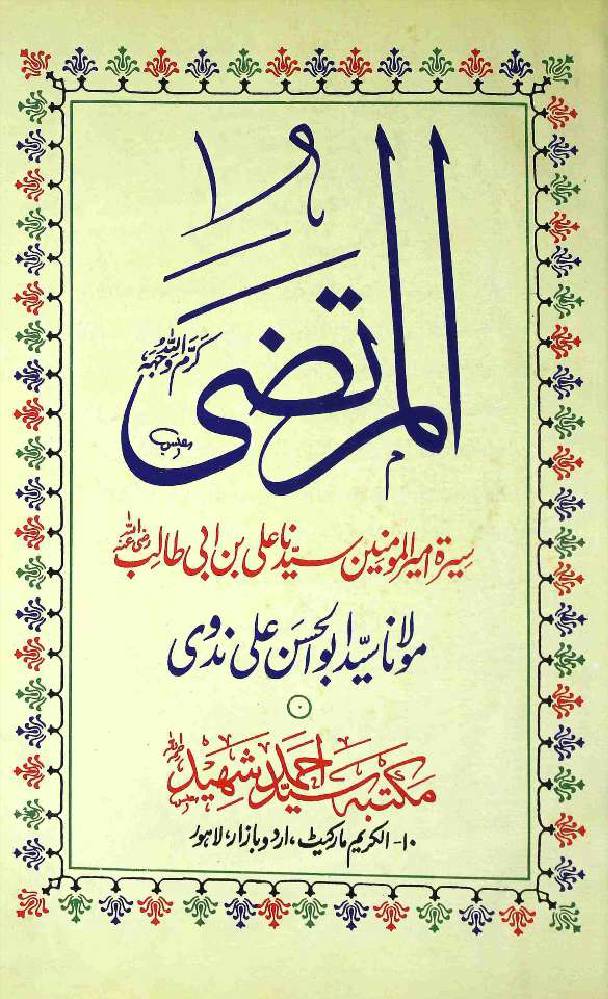 المرتضیٰ
کرّم اللہ وجہہٗ
سیرۃ امیر المومنین سیّدنا علی بن ابی طالب رضی اللہ عنہ
مولانا سیّد ابوالحسن علی ندوی
مکتبہ سیّد احمد شہید رحمہ اللہ
۱۰- الکریم مارکیٹ، اردو بازار، لاہور